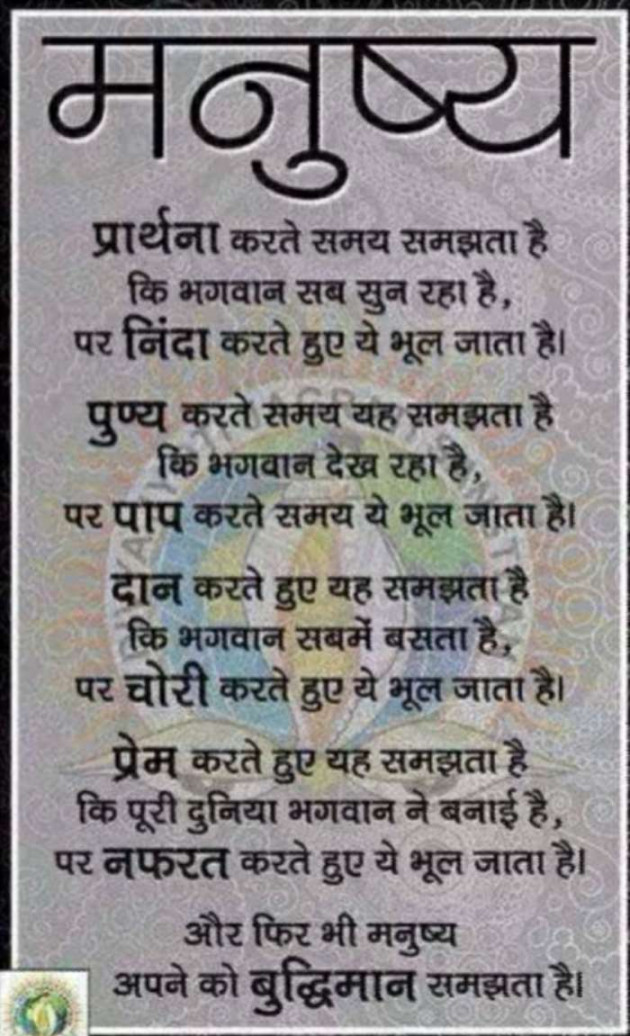 मनुष्य
प्रार्थना करते समय समझता है
कि भगवान सब सुन रहा है,
पर निंदा करते हुए ये भूल जाता है।
पुण्य करते समय यह समझता है
कि भगवान देख रहा है,
पर पाप करते समय ये भूल जाता है।
दान करते हुए यह समझता है
कि भगवान सबमें बसता है,
पर चोरी करते हुए ये भूल जाता है।
प्रेम करते हुए यह समझता है
कि पूरी दुनिया भगवान ने बनाई है,
पर नफरत करते हुए ये भूल जाता है।
और फिर भी मनुष्य
अपने को बुद्धिमान समझता है।